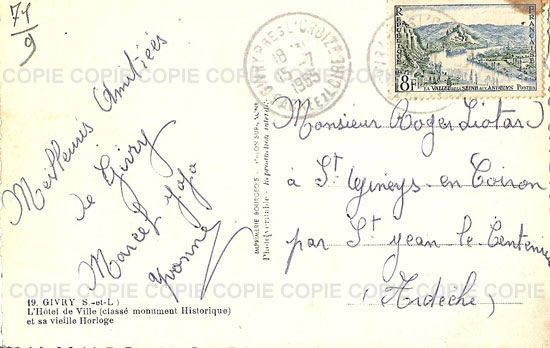 71
9
Meilleures Amitiés
de Givry
Marcel Yoyo
Yvonne
19. GIVRY S.-et-L.)
L'Hôtel de Ville (classé monument Historique)
et sa vieille Horloge
IMPRIMERIE BOURGEOIS - CHALON-SUR-SAONE
Photo véritable - Reproduction interdite
GIVRY PRES L'ORBIZE
18 H
15-7
1955
SAONE ET LOIRE
REPUBLIQUE FRANÇAISE
8F
LA VALLÉE DE LA SEINE AUX ANDELYS POSTES
Monsieur Roger Liotard
à St Gineys en Coiron
par St Jean le Centenier
(Ardèche)
COPIE COPIE COPIE COPIE COPIE COPIE COPIE
COPIE COPIE COPIE COPIE COPIE COPIE COPIE
COPIE COPIE COPIE COPIE COPIE COPIE COPIE